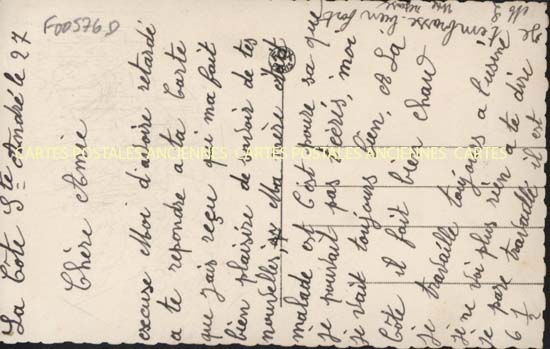 La Côte Ste André le 27
Chère Amie
excuse Moi d'avoire retardé
a te repondre a ta Carte
que j'ais reçu qui ma fait
bien plaisire de savoir de tes
nouvelles, Ma mère étais
malade est C'est poure sa que
je pourrait pas t'écrés, moi
je vait toujours bien. A La
Côte il fait bien chau
je travaille toujours a l'usine
je ne voi plus rien a te dire
je pare travaille il est
6 1/2
Je t'embrasse bien fort
F005769D
CARTES POSTALES ANCIENNES CARTES POSTALES ANCIENNES CARTES